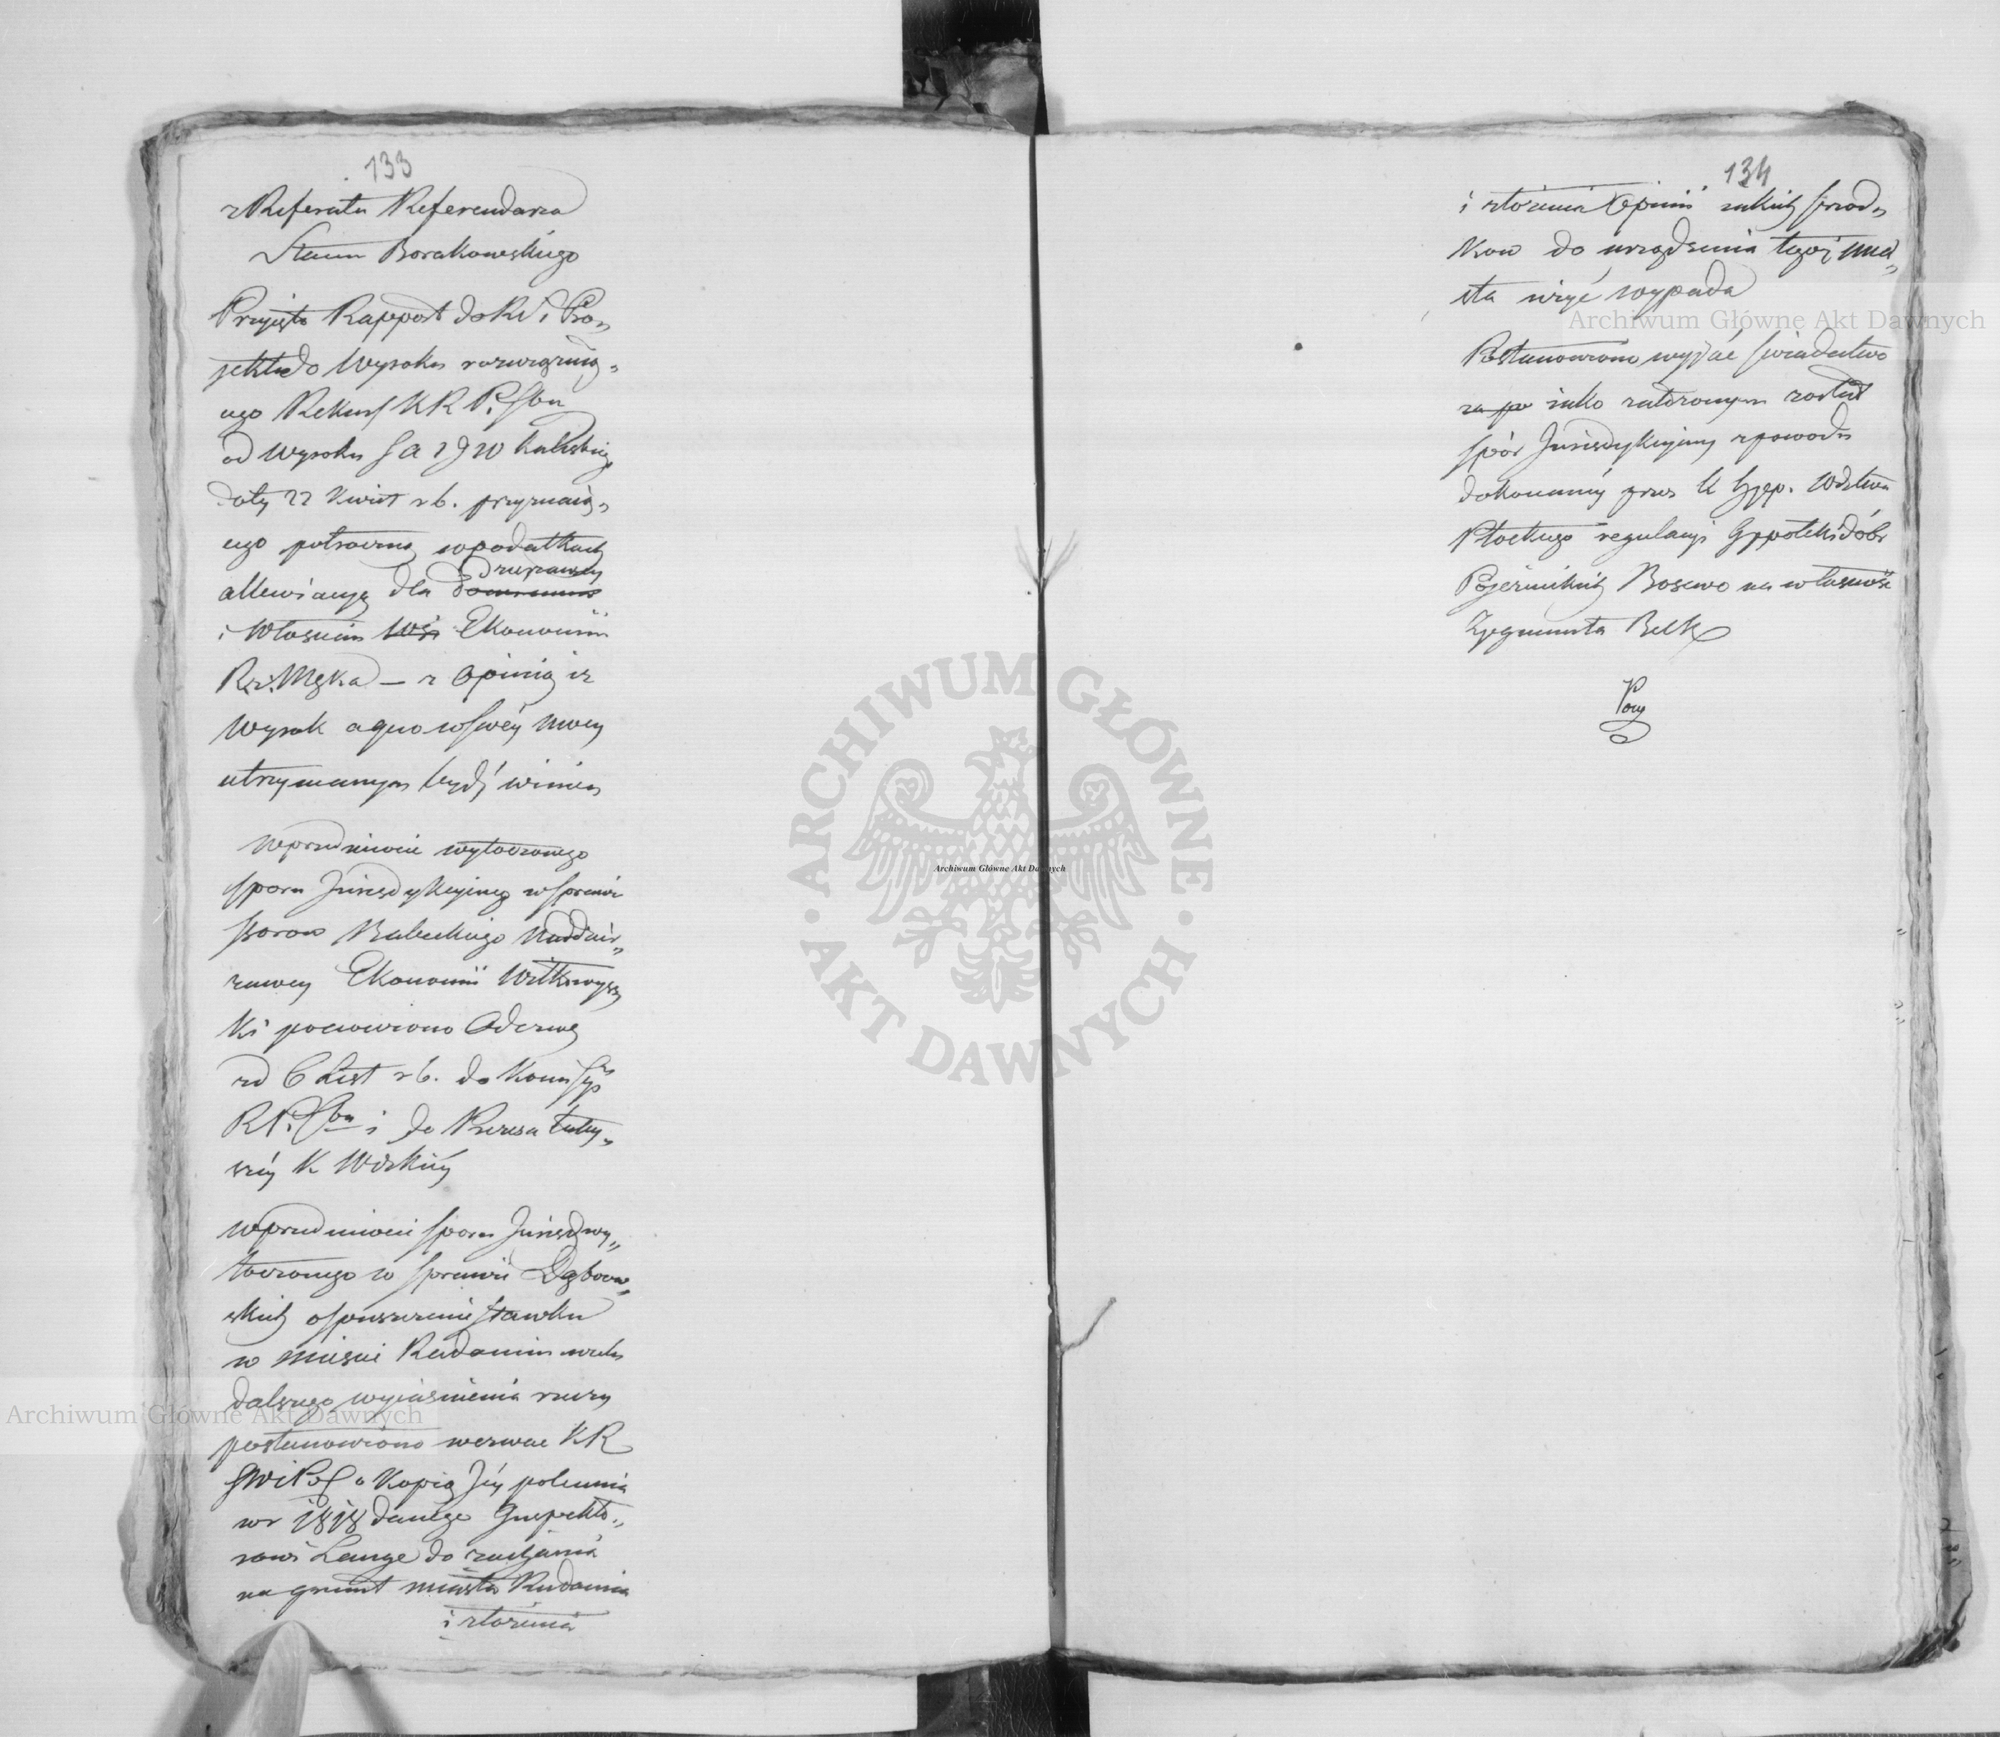 133
z Referatu Referendarza
Stanu Borakowskiego
Przyięto Rapport do KW i Pro„
jekt do Wyroku rozwiązuią„
cego Rekurs KRP. Sbu
od wyroku
daty 22 Kwiet r b. przyznaią„
cego potrącenia w podatkach
allewiacyę dla dzierżawcy
i Włościan Wsi Ekonomii
Rz. Męka — z Opinią iż
Wyrok a quo w swéy mocy
utrzymanym bydź winien
W przedmiocie wytoczonego
sporu Jurisdykcyinego w sprawie
Borow Kubeckiego Naddzier„
zawcy Ekonomii
ki ponowiono Odezwę
z d 6 List r b. do Kommissyi
RP. Sbu i do Prezesa tutey„
széy K Wdzkiéy
W przedmiocie sporu Jurisd wy„
toczonego w sprawie Dąbrow„
skich o spuszczenie stawku
w mieście Radomiu w celu
dalszego wyiaśnienia rzeczy
postanowiono wezwać KR
SWiPol o Kopią Jéy polecenia
w r 1818 danego Inspekto„
rowi Lange do ziechania
na grunt miasta Radomia
i złożenia
134
i złożenia Opinii iakich środ„
kow do urządzenia tegoż mia„
sta użyć wypada
Postanowiono wydać świadectwo
za po iako zatorowym został
spór Jurisdykcyiny z powodu
dokonanéy przez K Hyp. Wdztwa
Płockiego regulacyi Hypoteki dóbr
Pojezuickich Boszewo na własność
Zygmunta Belk
Archiwum Główne Akt Dawnych
Archiwum Główne Akt Dawnych
Archiwum Główne Akt Dawnych
ARCHIWUM GŁÓWNE · AKT DAWNYCH ·